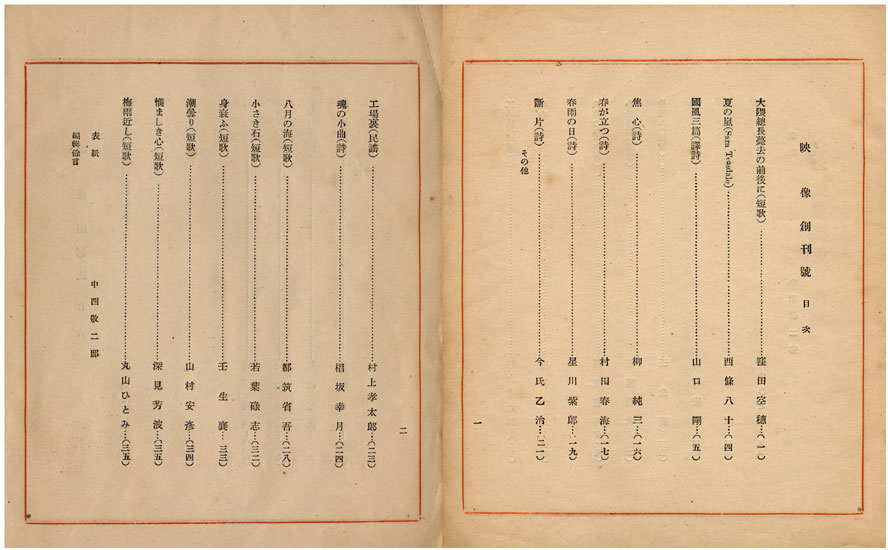 映像創刊號 目次
大隈總長薨去の前後に(短歌)……窪田空穗…(一)
夏の嵐(Sara Teasdale)……西條八十…(四)
國風三篇(譯詩)……山口剛…(五)
焦心(詩)……柳純三…(一六)
春が立つ(詩)……村田春海…(一七)
春雨の日(詩)……星川紫郎…(一九)
斷片(詩)……今氏乙治…(二一)
その他
一
工場裏(民謠)……村上孝太郎…(二三)
魂の小曲(詩)……椙坂幸月…(二四)
八月の海(短歌)……都筑省吾…(二八)
小さき石(短歌)……若葉碌志…(三二)
身衰ふ(短歌)……壬生襄…(三三)
潮曇り(短歌)……山村安彥…(三四)
惱ましき心(短歌)……深見芳波…(三五)
梅雨近し(短歌)……丸山ひとみ…(三五)
表紙 中西敬二郎
編輯餘言
二